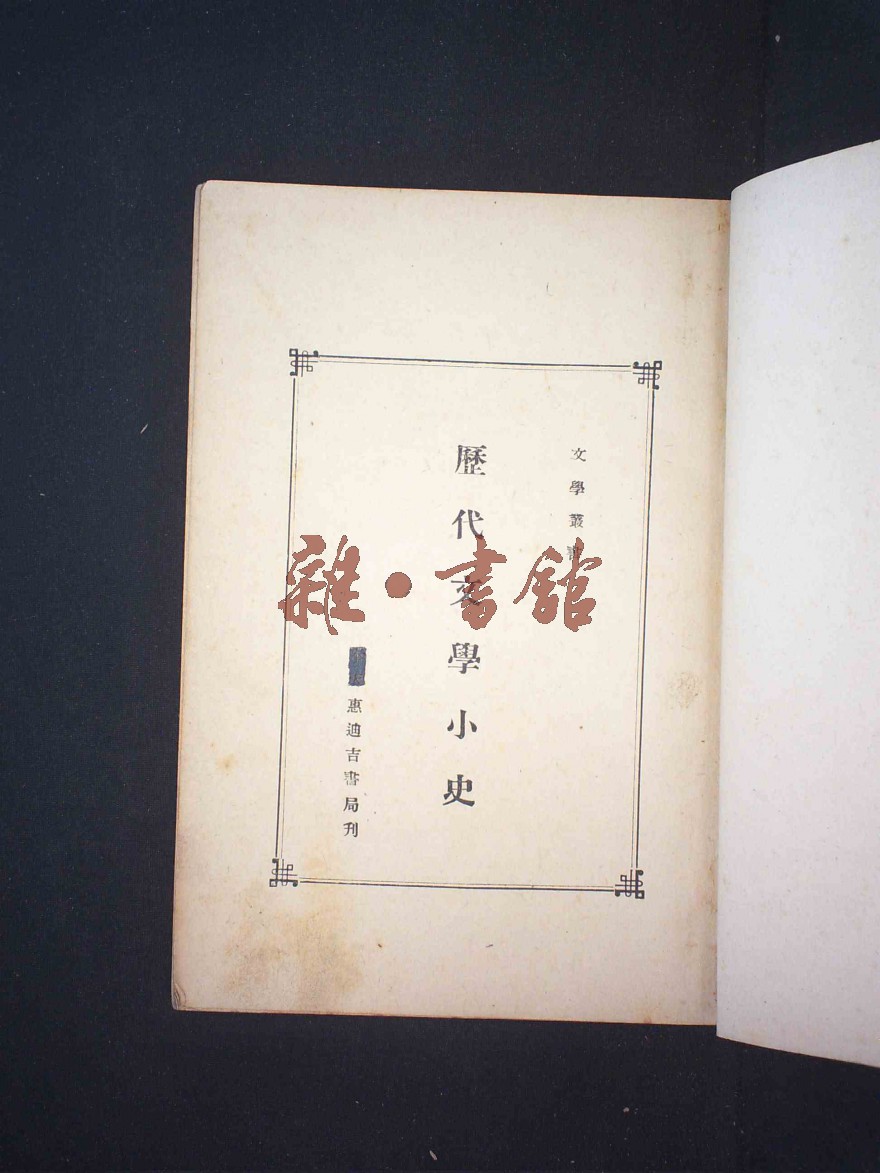 文學叢書
歷代文學小史
惠迪吉書局刊
雜·書館